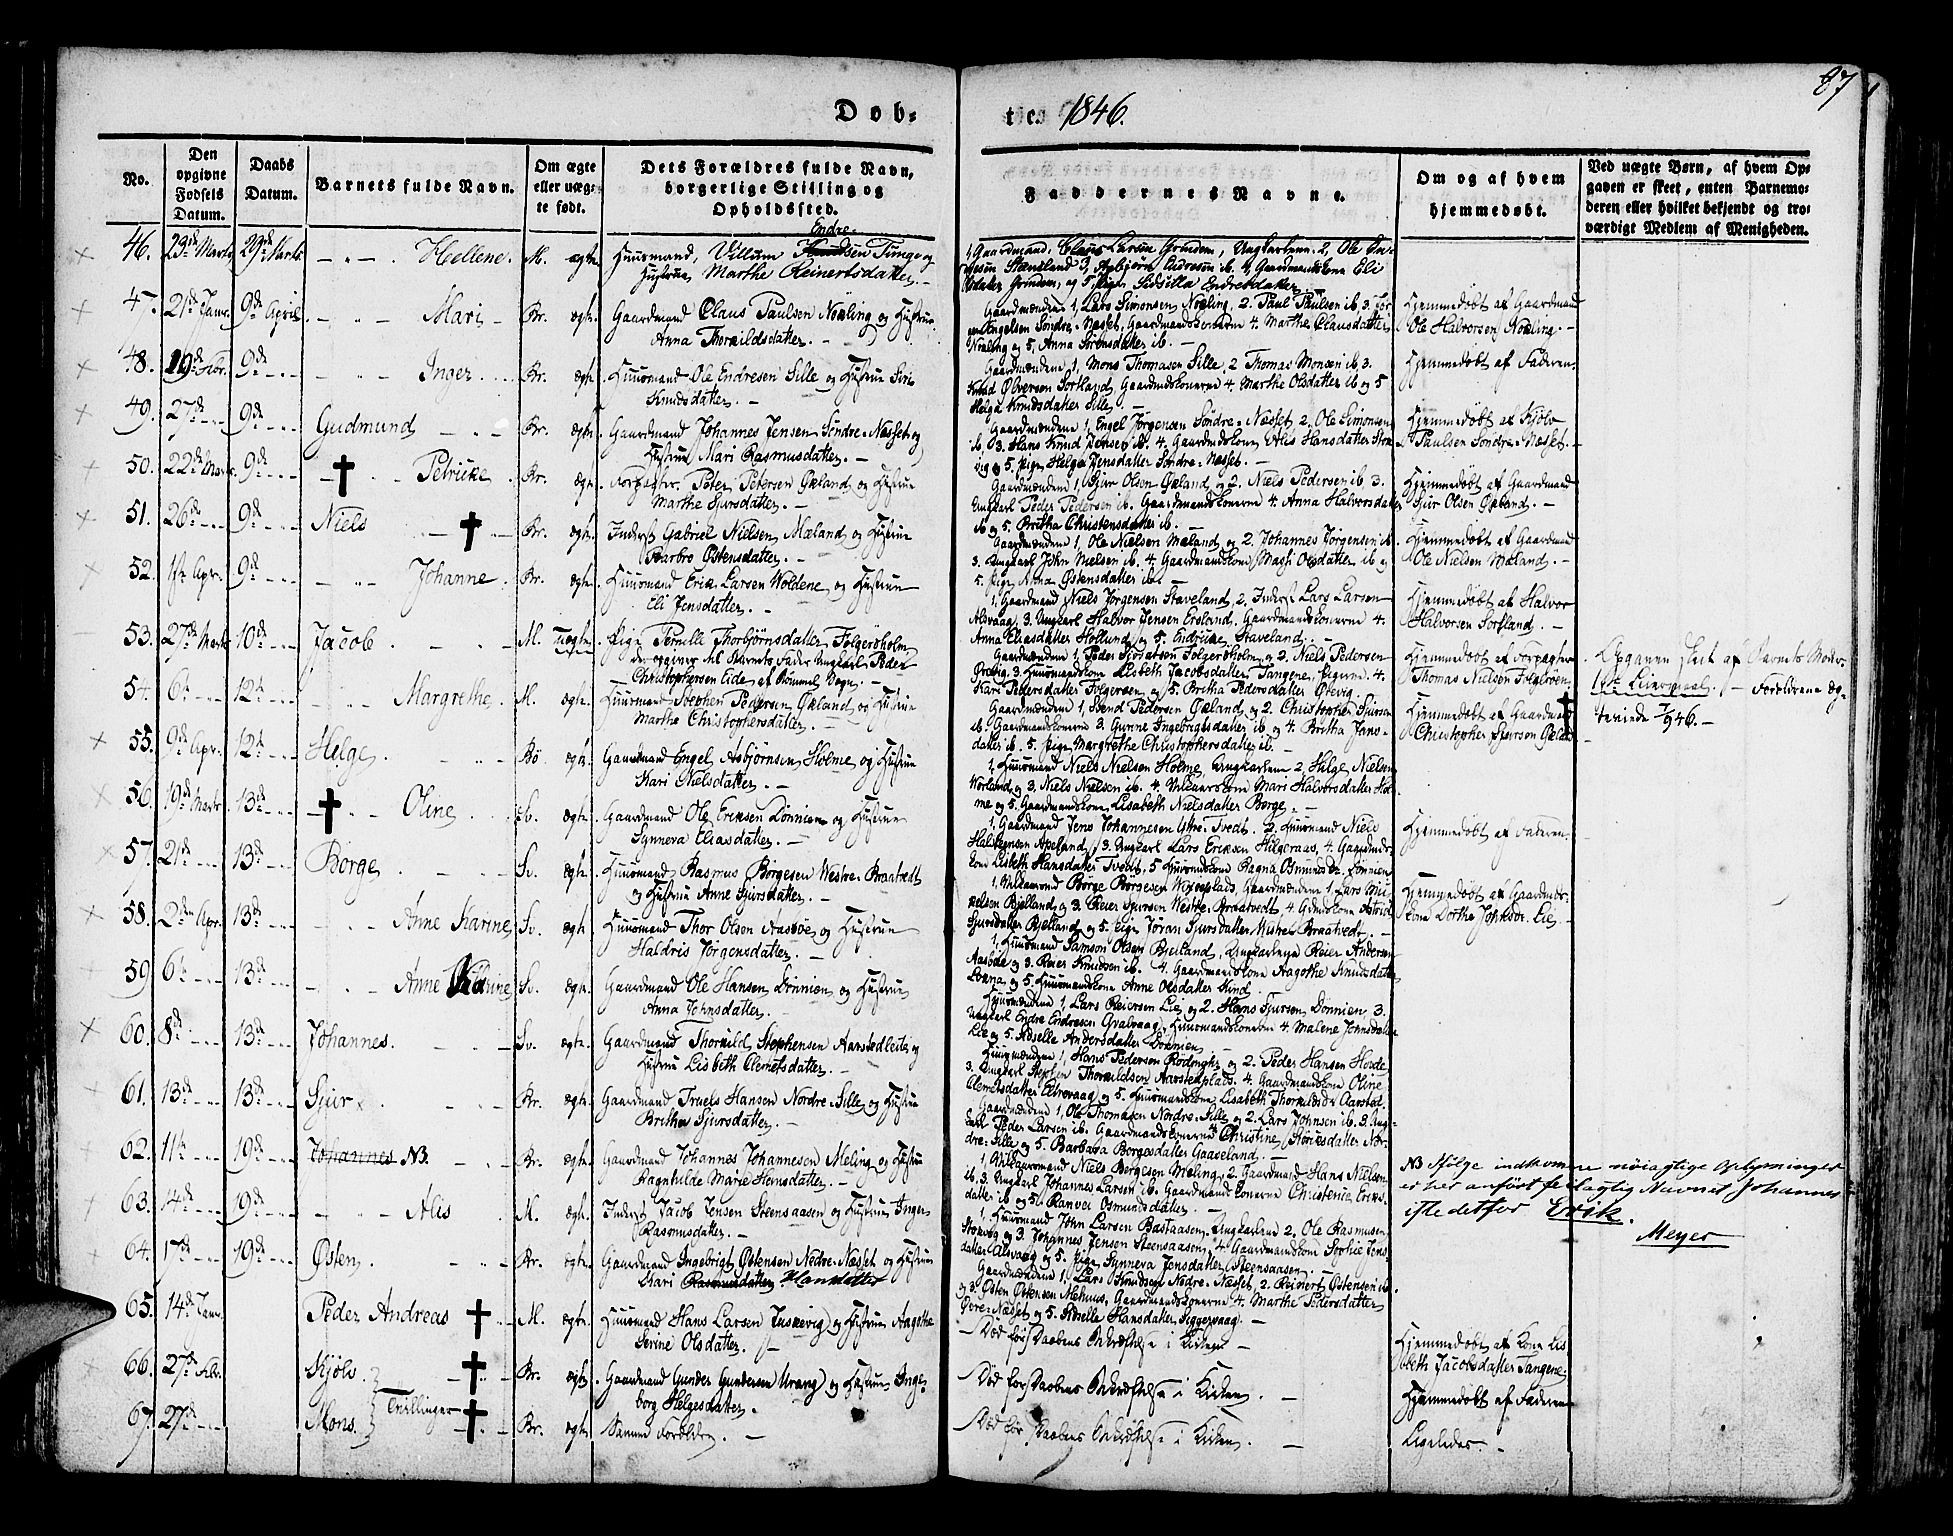 87
Døb-
te. 1846.
No.
Den opgivne Fødsels Datum.
Daabs Datum.
Barnets fulde Navn.
Om ægte eller uæg- te født.
Dets Forældres fulde Navn, borgerlige Stilling og Opholdssted.
Faddernes Navne.
Om og af hvem hjemmedøbt.
Ved uægte Børn, af hvem Op- gaven er skeet, enten Barnemo- deren eller hvilket bekjendt og tro- værdigt Medlem af Menigheden.
46. 23de Marts 29de Marts Hellene. M. ægte Huusmand, Villum Endre- Tunge og
Hustrue, Marthe Reinertsdatter. -
1, Gaardmand Claus Larsen Grinden, Ungkarlene 2, Ole
Stensland 3, Asbjørn Endresen ib. 4, Gaardmandskone Eli
Grinden, og 5 Pigen Sidsilla Endresdatter.
47. 21de Janr. 9de April Mari Br. Ægte. Gaardmand Claus Paulsen Nøhling og Hustrue
Anna Thorkildsdatter.
Gaardmændene 1, Lars Simonsen Nøhling, 2. Paul Paulsen ib. 3.
Engelsen Søndre-Næsset, Gaardmandskonerne 4. Marthe Clausdatter
Nøhling og 5, Anna Sørensdatter ib. -
Hjemmedøbt af Gaardmand
Ole Halvorsen Nøhling. -
48. 19de Febr. 9de Inger Br. ægte. Huusmand Ole Endresen Sille og Hustrue Siri
Knudsdatter. -
Gaardmændene 1, Mons Thomasen Sille, 2 Thomas Monsen ib. 3.
Knud Ølversen Sortland, Gaardmandskonerne 4. Marthe Olsdatter ib og 5
Helga Knudsdatter Sille. -
Hjemmedøbt af Faderen.
49. 27de 9de Gudmund Br. ægte. Gaardmand Johannes Jensen Søndre-Næsset og
Hustrue Mari Rasmusdatter. -
Gaardmændene 1, Engel Jørgensen Søndre-Næsset, 2. Ole Simonsen
ib, 3. Hans Knud Jensen ib. 4. Gaardmdskonen Alis Hansdatter
vig og 5. Pigen Helga Jensdatter Søndre-Næsset. -
Hjemmedøbt af Kjølv
Paulsen Søndre-Næsset.
50. 22de Marts 9de Petrikke Br. Ægte. Forpagter, Peter Petersen Økland og Hustrue
Marthe Sjursdatter. -
Gaardmændene 1, Sjur Olsen Økland og 2. Niels Pedersen ib 3.
Ungkarl Peder Pedersen ib. Gaardmandskonerne 4. Anna Halvorsdatter
ib og 5. Britha Christensdatter ib.
Hjemmedøbt af Gaardmand
Sjur Olsen Økland. -
51. 26de 9de Niels Br. ægte. Inderst Gabriel Nielsen Mæland og Hustrue
Barbro Østensdatter. -
Gaardmændene 1, Ole Nielsen Mæland og 2. Johannes Jørgensen ib
3. Ungkarl John Nielsen ib. 4. Gaardmandskone Magli Olsdatter ib og
5. Pige Anna Østensdatter ib.
Hjemmedøbt af Gaardmand
Ole Nielsen Mæland. -
52. 1ste Apr. 9de Johanne Br. ægte. Huusmand Erik Larsen Woldene og Hustrue
Eli Jensdatter. -
1, Gaardmand Niels Jørgensen Staveland, 2. Inderst Lars Larsen
Alsvaag, 3. Ungkarl Halvor Jensen Ersland. Gaardmandskonerne 4.
Anna Eliasdatter Hollund og 5. Endrikke Staveland. -
Hjemmedøbt af Halvor
Halvorsen Sortland. -
53. 27de Marts 10de Jacob M. Uægte. Pige Pernille Thorbjørnsdatter, Følgerøholm,
der opgiver til Barnets Fader Ungkarl Peder
Christophersen Eide af Bømmel Sogn. -
Gaardmændene 1, Peder Følgerøholm og 2. Niels Pedersen
3. Huusmandskone Lisbeth Jacobsdatter, Tangene, Pigerne 4.
Kari Pedersdatter Følgerøen og 5. Britha Pedersdatter Økevig.
Hjemmedøbt af Forpagter
Thomas Nielsen Følgerøen
Opgaven skeet af Barnets Moder.
1ste Leiermaal. - Forældrene æg-
teviede 7/9 46. -
54. 6te 12te Margrethe M. Ægte. Huusmand Stephen Pedersen Økland og Hustrue
Marthe Christophersdatter. -
Gaardmændene 1, Svend Pedersen Økland og 2. Christopher Sjursen
ib. Gaardmandskonerne 3. Gunne Ingebrigtsdatter ib og 4. Britha Jens-
datter ib. 5. Pigen Margrethe Christophersdatter ib.
Hjemmedøbt af Gaardmand
Christopher Sjursen Økland
55. 9de Apr. 12te Helge Bø ægte. Gaardmand Engel Asbjørnsen Holme og Hustrue
Kari Nielsdatter. -
1, Huusmand Niels Nielsen Holme, Ungkarlene 2, Helge Nielsen
Worland og 3. Niels Nielsen ib. 4. Mari Halvorsdatter Hol-
me og 5. Gaardmandskone Lisabeth Nielsdatter Børge. -
56. 19de Marts 13de Oline ægte. Gaardmand Ole Eriksen Lønnien og Hustrue
Synneva Eliasdatter. -
1, Gaardmand Jens Johannesen Yttre-Tvedt, 2. Huusmand Niels
Apeland, 3. Ungkarl Lars Eriksen Helgeraas, 4. Gaardmds-
kone Lisbeth Hansdatter Tvedt, 5 Huusmandskone Ragna
Hjemmedøbt af Faderen.
57. 21de 13de Børge Sv. Ægte. Huusmand Rasmus Børgesen Westre-Braatvedt
og Hustrue Anne Sjursdatter. -
Børge Børgesen Gaardmændene 1 Lars Mi-
kelsen Bjelland og 3. Reier Sjursen Westre-Braatvedt, 4 Astrid
Sjursdatter Bjelland og 5. Pige Jøran Sjursdatter Westre Braatvedt. -
Hjemmedøbt af Gaardmds-
kone Dorthe Johnsdr. Lie. -
58. 2den Apr. 13de Anne Karine Sv. ægte. Huusmand Thor Olsen Aasbøe og Hustrue
Haldris Jørgensdatter. -
1, Huusmand Samson Olsen Bjelland, Ungkarlene Reier Andersen
Aasbøe og 3. Reier Knudsen ib. 4. Gaardmandskone Aagothe Knudsdatter
og 5 Huusmandskone Anne Olsdatter Kind.
59 6te 13de Anne Karine Sv. ægte. Gaardmand Ole Hansen Lønnien og Hustrue
Anna Johnsdatter. -
Huusmændene 1, Lars Reiersen Lie og 2. Hans Sjursen Lønnien, 3.
Ungkarl Endre Endresen Qvalvaag, Huusmandskonerne 4. Malene Johnsdatter
Lie og 5. Roselle Andersdatter Lønnien.
60. 8de 13de Johannes. Sv. ægte. Gaardmand Thorkild Stephensen Aarstedleite og
Hustrue Lisbeth Clemetsdatter. -
Huusmændene 1, Hans Pedersen og 2. Peder Hansen
3. Ungkarl Stephen Thorkildsen Aarstedplads. 4. Gaardmandskone Oline
Clemetsdatter og 5. Huusmandskone Lisabeth Aarsted
61. 13de 13de Sjur Br. ægte. Gaardmand Truels Hansen Nordre-Sille og Hustrue
Britha Sjursdatter. -
Gaardmændene 1, Ole Thomasen Nordre-Sille og 2. Lars Johnsen ib. 3. Ung-
karl Peder Larsen ib. Gaardmandskonerne 4 Christine Nor-
dre-Sille og 5. Barbara Børgesdatter
62. 11te 19de Johannes NB. Br. Ægte. Gaardmand Johannes Johannesen Meling og Hustrue
Ragnhilde Marie Hansdatter. -
1, Niels Børgesen Mæling, 2. Gaardmand Hans Nielsen
ib, 3. Ungkarl Johannes Larsen ib. Gaardmandskonerne Christense Eriks-
datter ib og 5. Ranvei Osmundsdatter. -
NB Ifølge indkomne nøiagtige Oplysninger
er her anført feilagtig Navnet Johannes
istedetfor Erik.
Meyer
63. 4de 19de Alis M. ægte. Inderst Jacob Jensen Steensaasen og Hustrue Inger
Rasmusdatter. -
1, Huusmand John Larsen Bastaasen, Ungkarlene 2. Ole Rasmusen
Stokvog og 3. Johannes Jensen Steensaasen, 4. Gaardmandskone Sophie Jens-
datter Alsvaag og 5. Pige Synneva Jensdatter Steensaasen. -
64. 17de 19de Østen. Br. ægte. Gaardmand Ingebrigt Østensen Nedre-Næsset og Hustrue
Kari Rasmusdatter Hansdatter
Gaardmændene 1. Lars Knudsen Nedre-Næsset, 2. Reinert Østensen ib
og 3. Østen Østensen Mehuus, Gaardmandskonerne 4. Marthe Pedersdatter
Øvre-Næsset og 5. Roselle Hansdatter Siggervaag. -
65. 14de Janr. Peder Andreas M. ægte. Huusmand Hans Larsen Juskevig og Hustrue Aagothe
Serine Olsdatter. -
- Død før Daabens Bekræftelse i Kirken -
Hjemmedøbt af Kone Lis-
beth Jacobsdatter Tangene.
66. 27de Febr. Kjølv. Br. ægte. Gaardmand Gunder Gundersen Vrang og Hustrue Inge-
borg Helgesdatter. -
Død før Daabens Bekræftelse i Kirken. -
Hjemmedøbt af Faderen
Tvillinger
67. 27de Mons. Br. ægte. Samme Forældre. -
Død før Daabens Bekræftelse i Kirken. -
Ligeledes. -